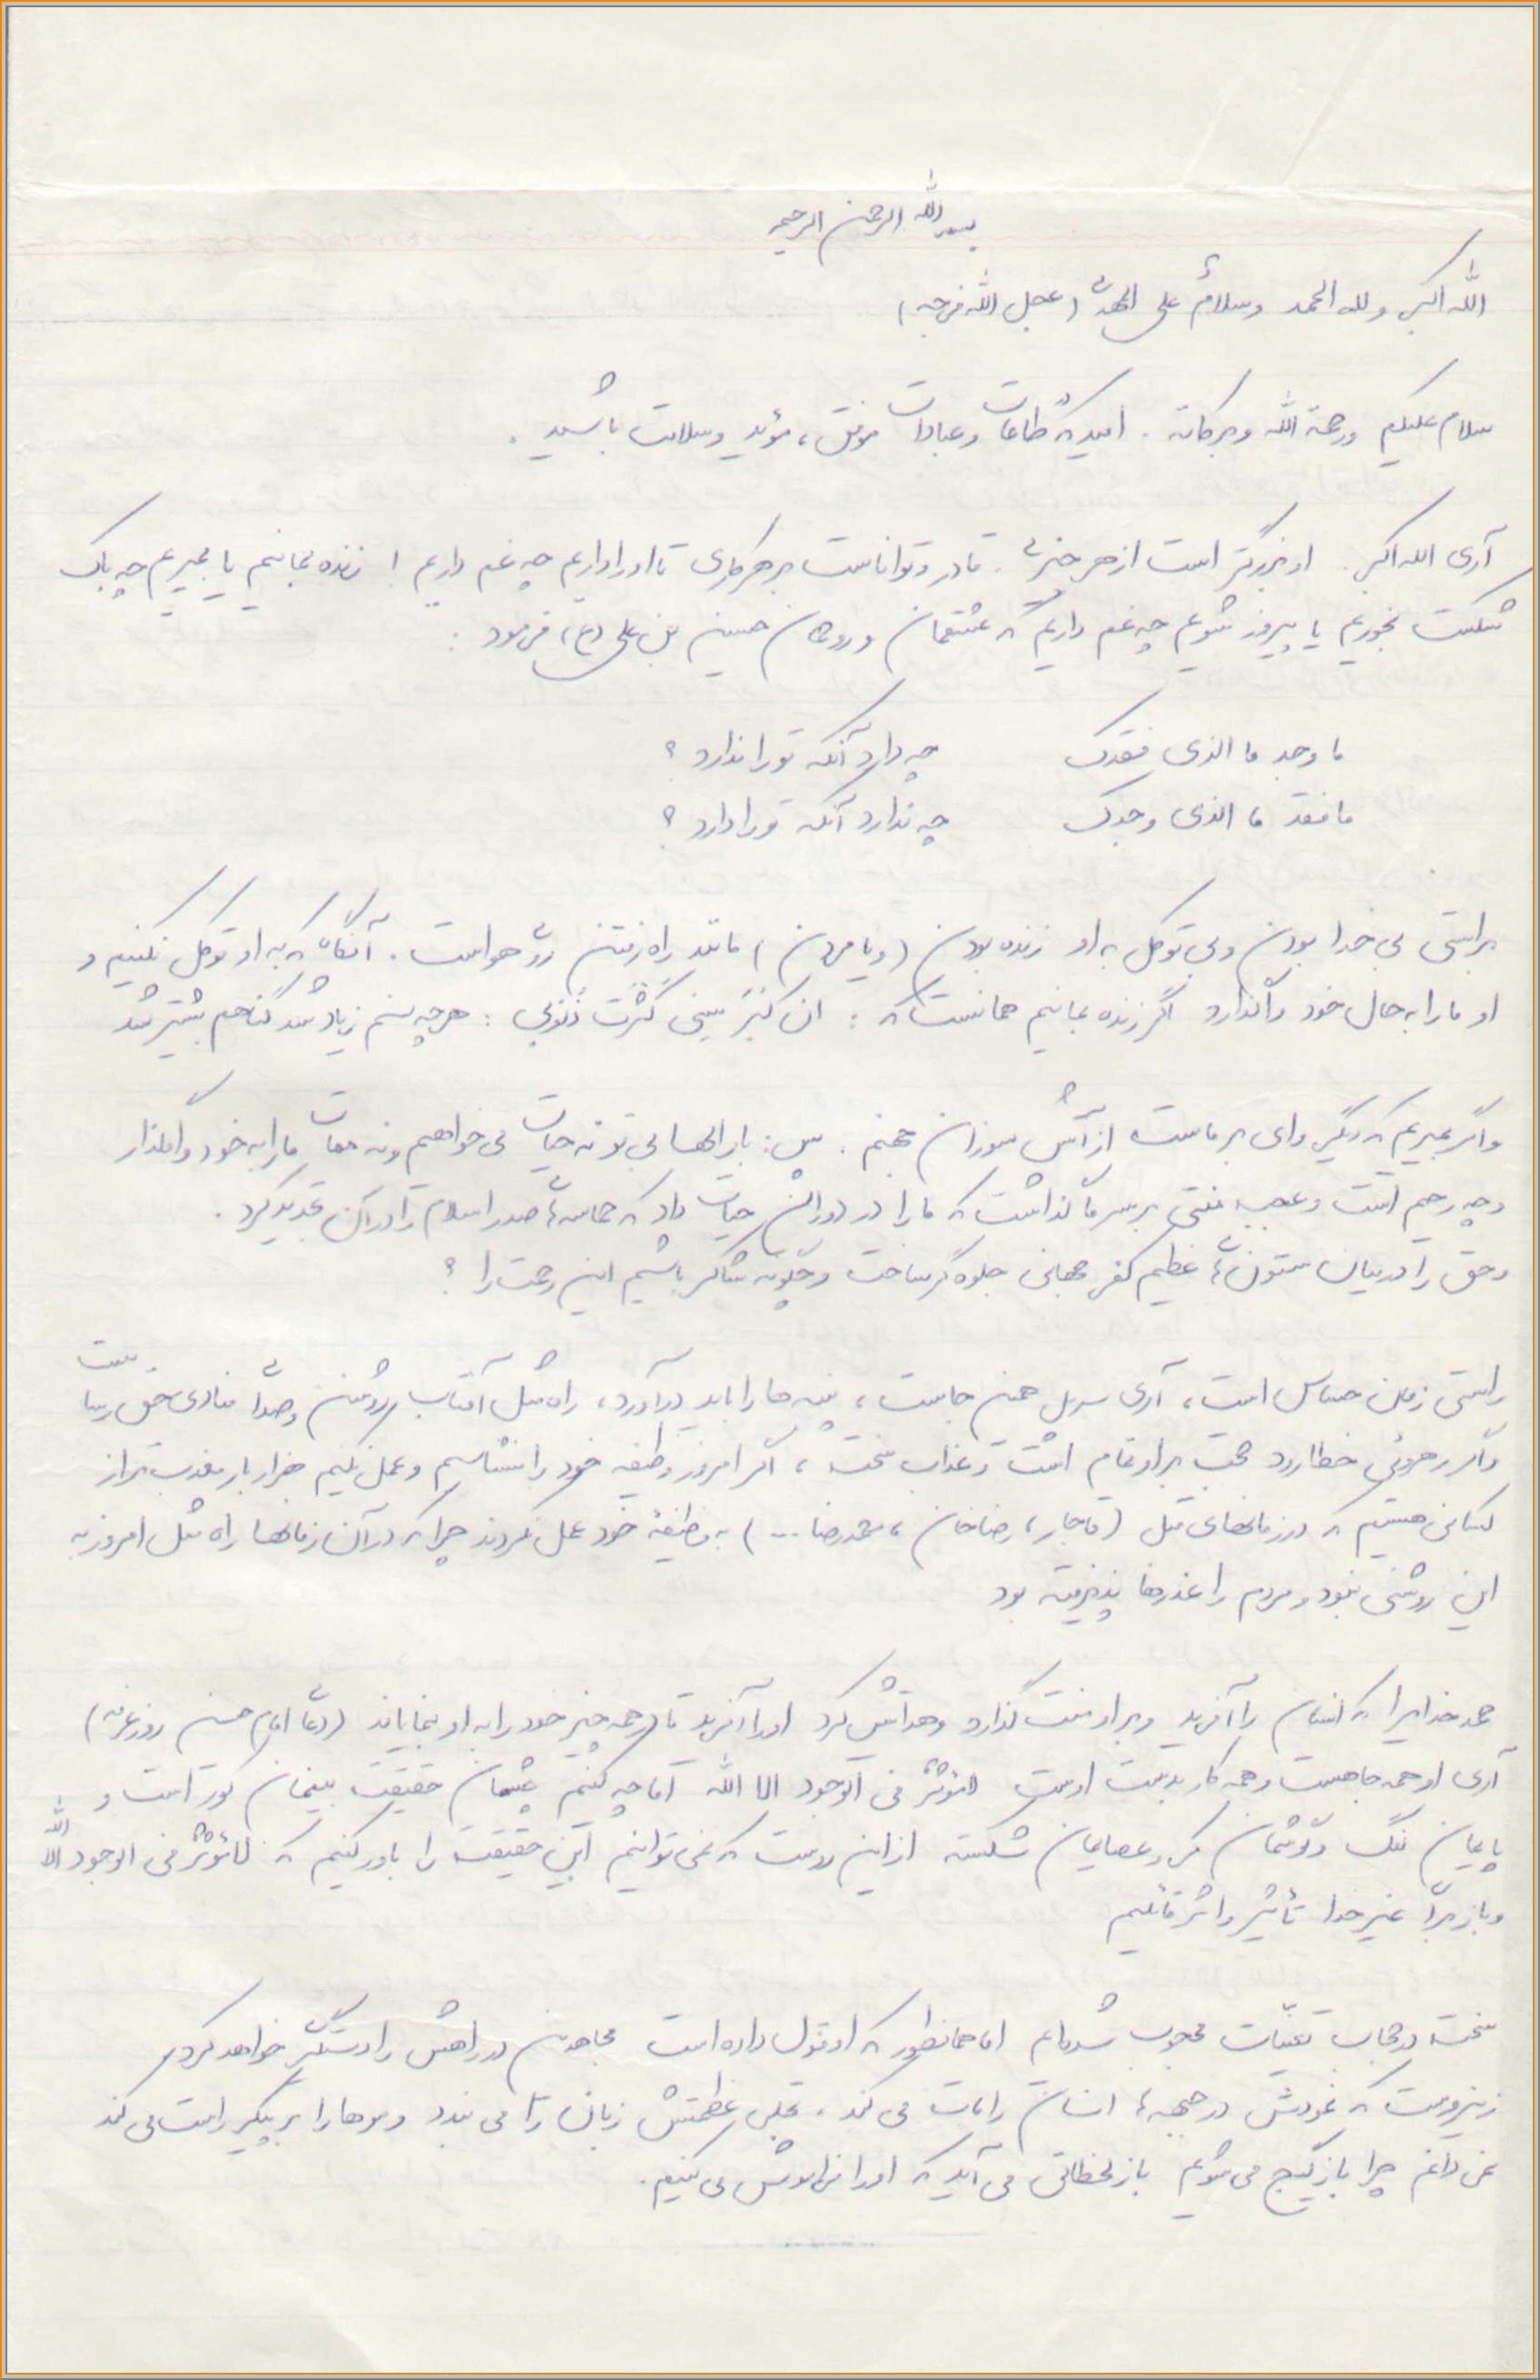 بسم الله الرحمن الرحیم
الله اکبر ولله الحمد وسلامٌ علی المهدی (عجل الله فرجه)
سلام علیکم ورحمة الله وبرکاته . امید که طاعات وعبادات موفق، مؤید وسلامت باشید .
آری الله اکبر. او بزرگتر است از هر چیزی . قادر وتواناست بر هر کاری تا او را داریم چه غم داریم ! زنده بمانیم یا بمیریم چه باک
شکست بخوریم یا پیروز شویم چه غم داریم که عشقمان و روحمان حسین بن علی (ع) فرمود :
ما وجد ما الذی فقدک چه دارد آنکه تو را ندارد ؟
ما فقد ما الذی وجدک چه ندارد آنکه تو را دارد ؟
براستی بی خدا بودن وبی توکل به او زنده بودن (ویا مردن) مانند راه رفتن روی هواست . آنگاه که به او توکل نکنیم و
او ما را به حال خود واگذارد اگر زنده بمانیم همانست که : ان کَبُرَ سِنی کَثُرَت ذُنوبی : هر چه سنم زیاد شد گناهم بیشتر شد
واگر بمیریم که دیگر وای بر ماست از آتش سوزان جهنم . پس : بار الها بی تو نه حیات می خواهیم ونه ممات ما را به خود وامگذار
وچه رحیم است وعجب منتی بر سر ما گذاشت که ما را در دوران حیات داد که حماسه های صدر اسلام را در آن تجدید کرد .
وحق را در میان ستونهای عظیم کفر جهانی جلوه گر ساخت وچگونه شاکر باشیم این رحمت را ؟
راستی زمان حساس است، آری سر پل همین جاست، پنبه ها را باید درآورد، راه مثل آفتاب روشن وصدای منادی حق رساست
واگر رهروئی خطا رود حجت بر او تمام است وعذاب سخت، اگر امروز وظیفه خود را نشناسیم وعمل نکنیم هزار بار معذب تر از
کسانی هستیم که در زمانهای قبل (قاجار، رضاخان، محمدرضا ...) به وظیفۀ خود عمل نکردند چرا که در آن زمانها راه مثل امروز به
این روشنی نبود و مردم را عذرها پذیرفته بود
حمد خدایرا که انسان را آفرید وبر او منت گذارد وهدایتش کرد او را آفرید تا در همه چیز خود را به او بنمایاند (دعای امام حسین روز عرفه)
آری او همه جا هست وهمه کار بدست اوست لامؤثر فی الوجود الا الله اما چه کنیم چشمان حقیقت بینمان کور است و
پایمان لنگ وگوشمان کر وعصایمان شکسته از این روست که نمی توانیم این حقیقت را باور کنیم که لامؤثر فی الوجود الا الله
وباز برای غیر خدا تأثیر واثر قائلیم
سخت در حجاب تعینات محجوب شده ایم اما همانطور که او قول داده است مجاهدین در راهش را دستگیر خواهد کرد
نمودش در جبهه ها انسان را مات می کند . تجلی عظمتش زبان را می بندد وموها را بر پیکر راست می کند
نمی دانم چرا باز گیج می شویم باز لحظاتی می آید که او را فراموش می کنیم.